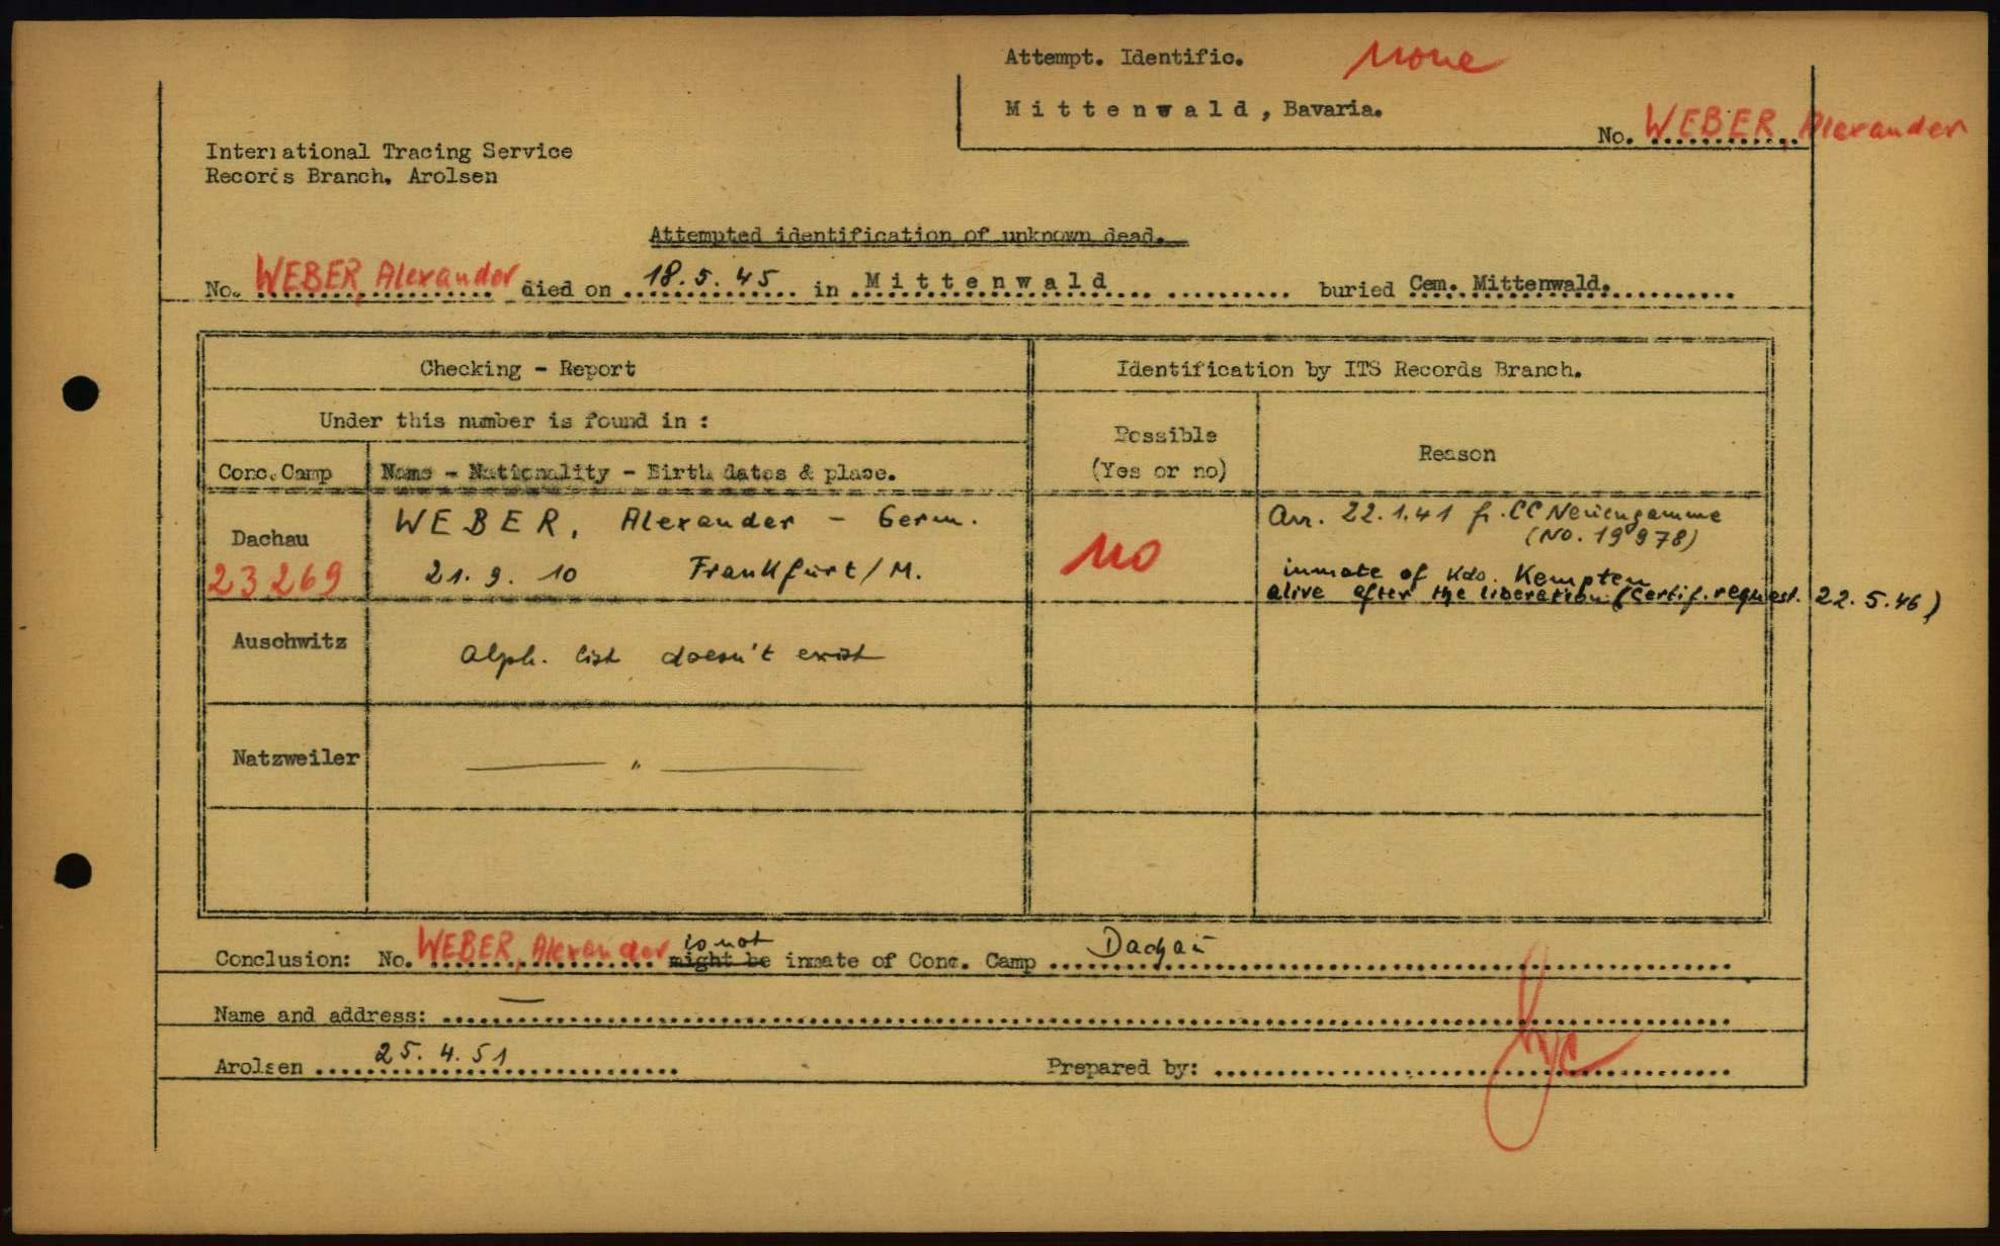 Attempt. Identific. none
Mittenwald, Bavaria.
No. WEBER, Alexander
International Tracing Service
Records Branch, Arolsen
Attempted identification of unknown dead.
No. WEBER, Alexander died on 18.5.45 in Mittenwald buried Cem. Mittenwald.
Checking - Report
Identification by ITS Records Branch.
Under this number is found in :
Possible
(Yes or no)
Reason
Conc.Camp
Name - Nationality - Birth dates & place.
Dachau
23269
WEBER, Alexander - Germ.
21. 9. 10 Frankfurt/M.
no
Arr. 22.1.41 fr. CC Neuengamme
(No. 19978)
inmate of Kdo. Kempten
alive after the liberation (Certif. request. 22.5.46)
Auschwitz
Alph. list doesn't exist
Natzweiler
——— " ———
Conclusion: No. WEBER, Alexander is not might be inmate of Conc. Camp Dachau
Name and address: —
Arolsen 25.4.51
Prepared by: